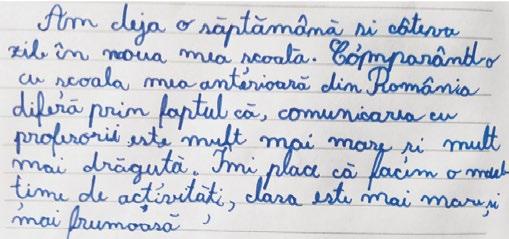 Am deja o săptămână si câteva
zile în noua mea scoala. Comparând-o
cu scoala mea anterioară din România
diferă prin faptul că, comunicarea cu
profesorii este mult mai mare și mult
mai drăguță. Îmi place că facem o mul-
time de activităti, clasa este mai mare, și
mai frumoasă